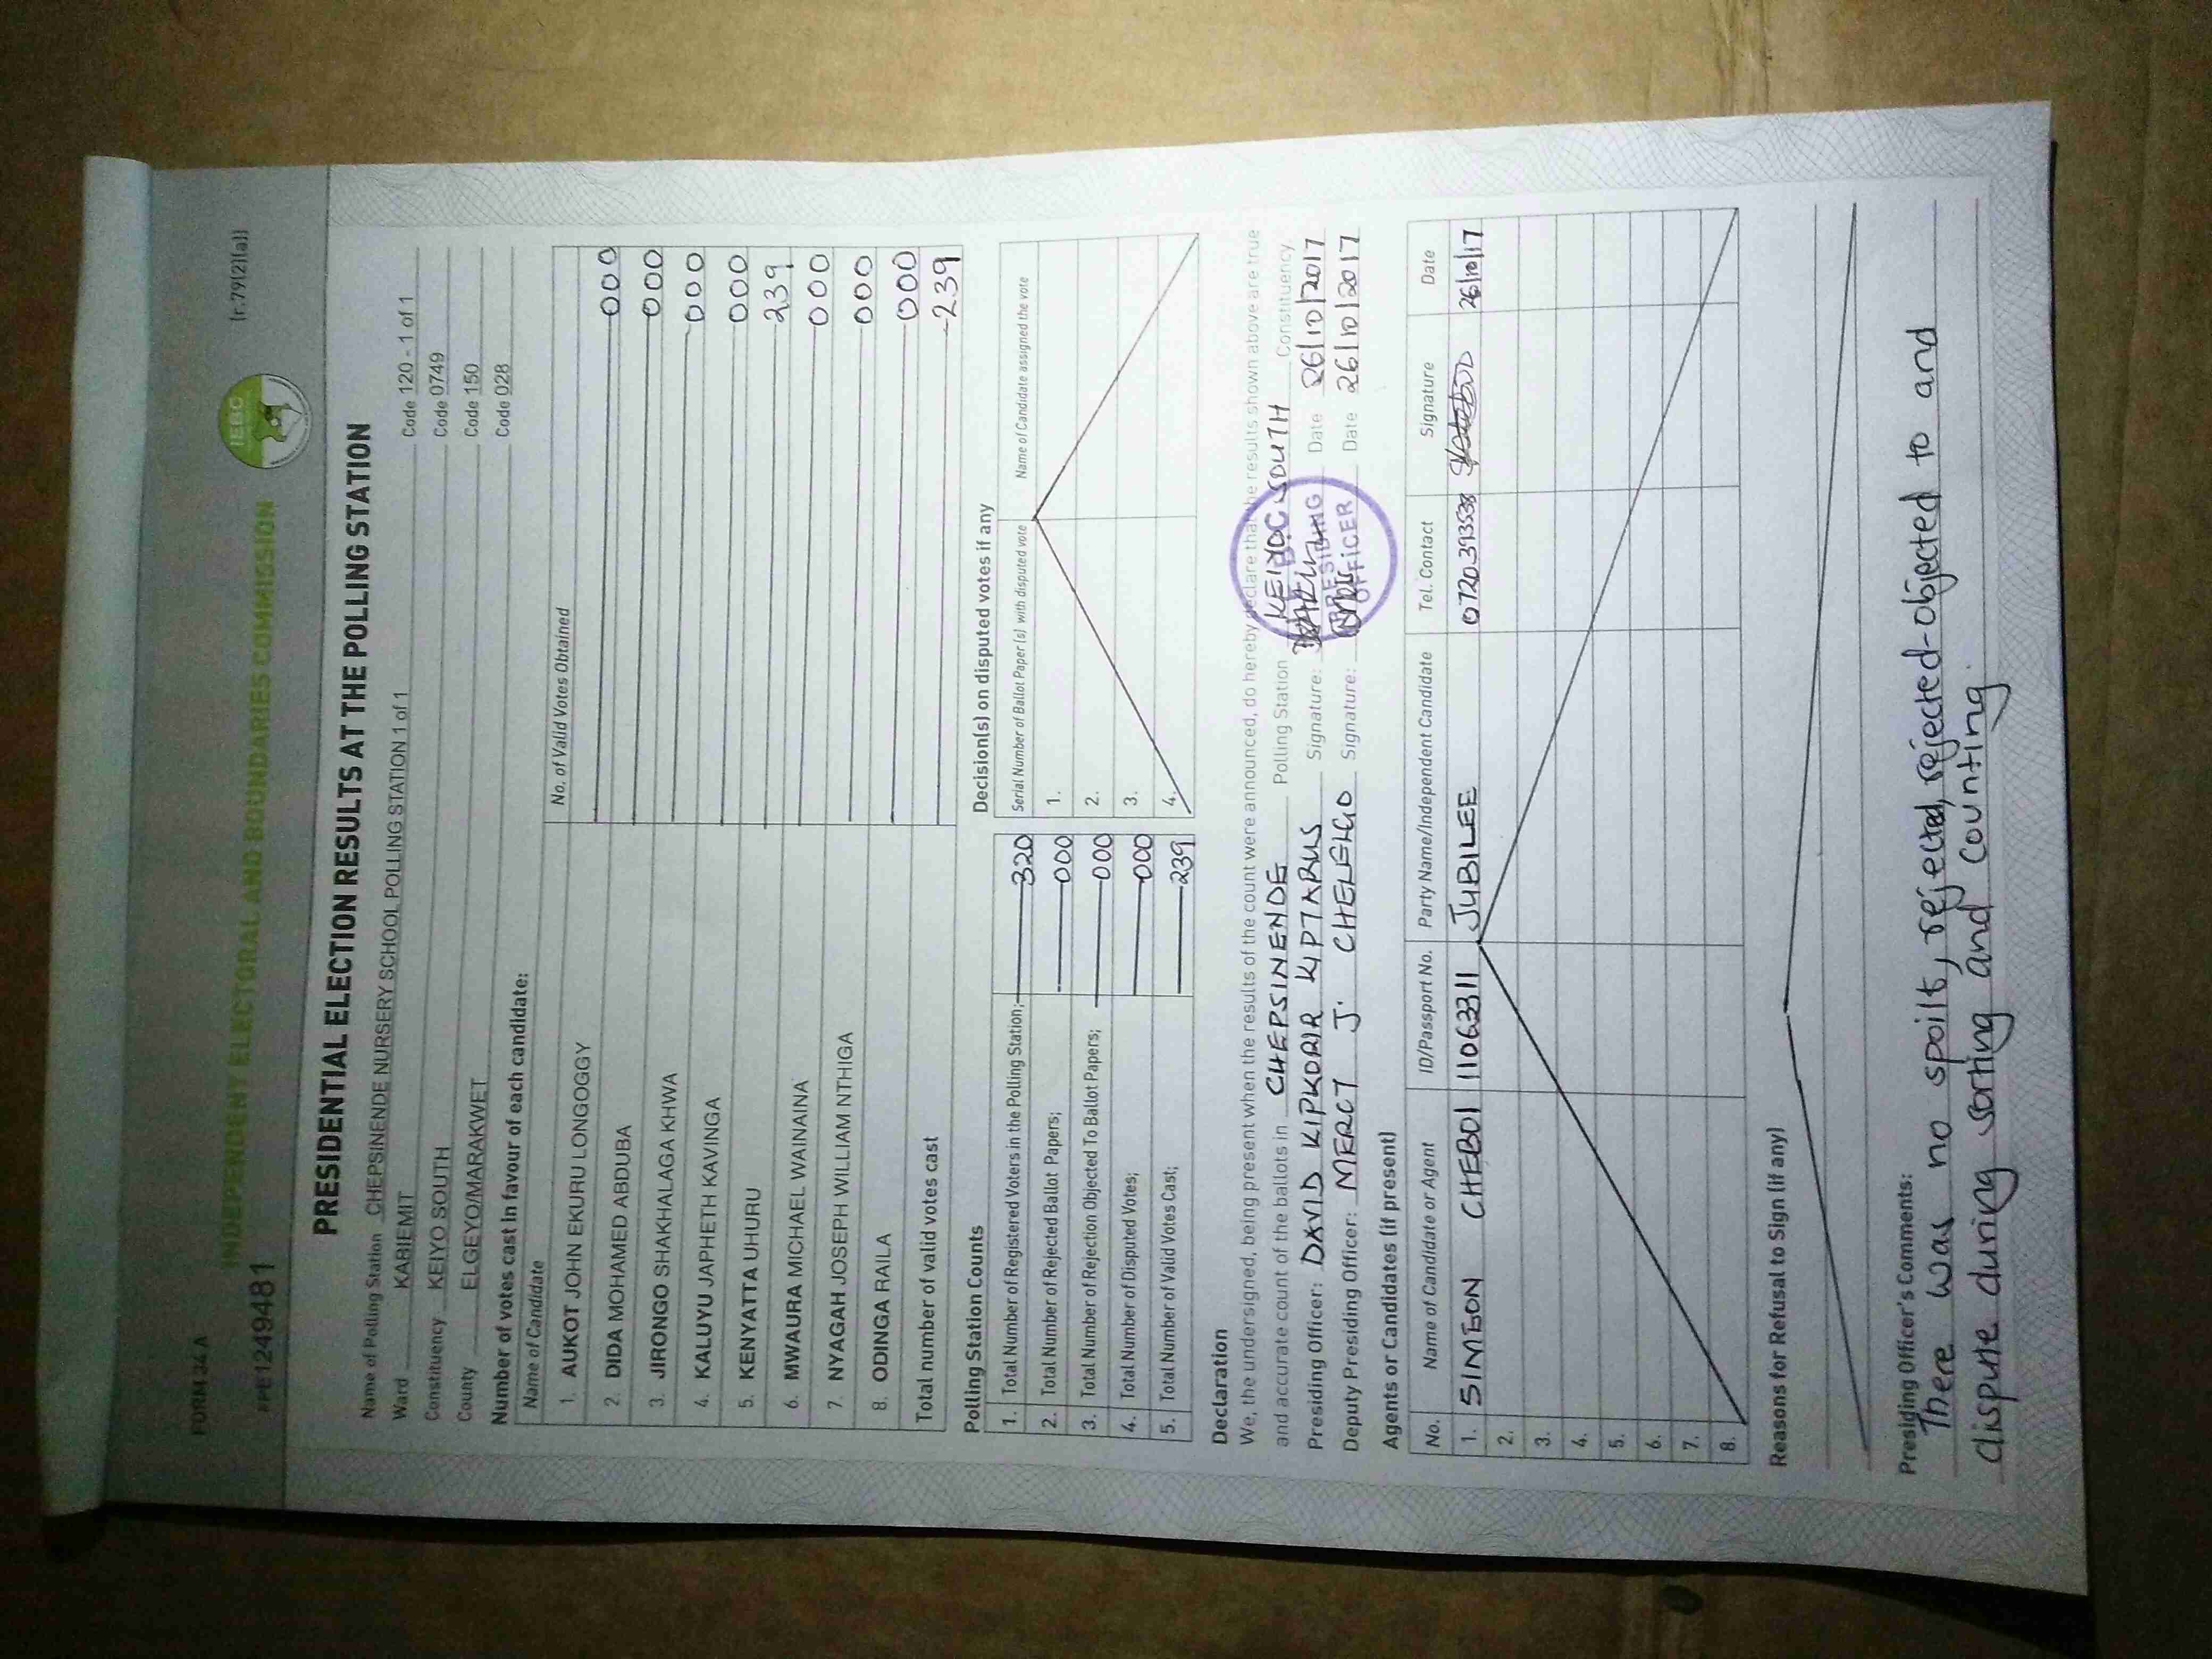 FORM 34 A
(r.79(2)(a))
PE1249481
IEBC
INDEPENDENT ELECTORAL AND BOUNDARIES COMMISSION
PRESIDENTIAL ELECTION RESULTS AT THE POLLING STATION
Name of Polling Station CHEPSINENDE NURSERY SCHOOL POLLING STATION 1 of 1 Code 120 - 1 of 1
Ward KABIEMIT Code 0749
Constituency KEIYO SOUTH Code 150
County ELGEYO/MARAKWET Code 028
Number of votes cast in favour of each candidate:
Name of Candidate No. of Valid Votes Obtained
1. AUKOT JOHN EKURU LONGOGGY 000
2. DIDA MOHAMED ABDUBA 000
3. JIRONGO SHAKHALAGA KHWA 000
4. KALUYU JAPHETH KAVINGA 000
5. KENYATTA UHURU 239
6. MWAURA MICHAEL WAINAINA 000
7. NYAGAH JOSEPH WILLIAM NTHIGA 000
8. ODINGA RAILA 000
Total number of valid votes cast 239
Polling Station Counts
1. Total Number of Registered Voters in the Polling Station; 320
2. Total Number of Rejected Ballot Papers; 000
3. Total Number of Rejection Objected To Ballot Papers; 000
4. Total Number of Disputed Votes; 000
5. Total Number of Valid Votes Cast; 239
Decision(s) on disputed votes if any
Serial Number of Ballot Paper (s) with disputed vote Name of Candidate assigned the vote
1.
2.
3.
4.
Declaration
We, the undersigned, being present when the results of the count were announced, do hereby declare that the results shown above are true
and accurate count of the ballots in CHEPSINENDE Polling Station KEIYO SOUTH Constituency
Presiding Officer: DAVID KIPKORIR KIPTARUS Signature: Date 26/10/2017
Deputy Presiding Officer: MERCY J. CHELELGO Signature: Date 26/10/2017
PRESIDING
OFFICER
Agents or Candidates (if present)
No. Name of Candidate or Agent ID/Passport No. Party Name/Independent Candidate Tel. Contact Signature Date
1. SIMEON CHEBOI 11063311 JUBILEE 0720393538 26/10/17
2.
3.
4.
5.
6.
7.
8.
Reasons for Refusal to Sign (if any)
Presiding Officer's Comments:
There was no spoilt, rejected, rejected-objected to and
dispute during sorting and counting.